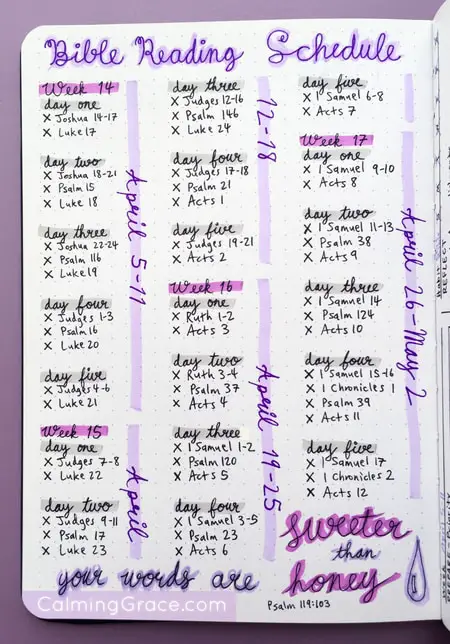 Bible Reading Schedule
Week 14
day one
X Joshua 14-17
X Luke 17
day two
X Joshua 18-21
X Psalm 15
X Luke 18
day three
X Joshua 22-24
X Psalm 116
X Luke 19
day four
X Judges 1-3
X Psalm 16
X Luke 20
day five
X Judges 4-6
X Luke 21
April 5-11
Week 15
day one
X Judges 7-8
X Luke 22
day two
X Judges 9-11
X Psalm 17
X Luke 23
April
day three
X Judges 12-16
X Psalm 146
X Luke 24
day four
X Judges 17-18
X Psalm 21
X Acts 1
day five
X Judges 19-21
X Acts 2
12-18
Week 16
day one
X Ruth 1-2
X Acts 3
day two
X Ruth 3-4
X Psalm 37
X Acts 4
day three
X 1 Samuel 1-2
X Psalm 120
X Acts 5
day four
X 1 Samuel 3-5
X Psalm 23
X Acts 6
April 19-25
day five
X 1 Samuel 6-8
X Acts 7
Week 17
day one
X 1 Samuel 9-10
X Acts 8
day two
X 1 Samuel 11-13
X Psalm 38
X Acts 9
day three
X 1 Samuel 14
X Psalm 124
X Acts 10
day four
X 1 Samuel 15-16
X 1 Chronicles 1
X Psalm 39
X Acts 11
day five
X 1 Samuel 17
X 1 Chronicles 2
X Acts 12
April 26-May 2
your words are
sweeter
than
honey
Psalm 119:103
CalmingGrace.com
REFLECT